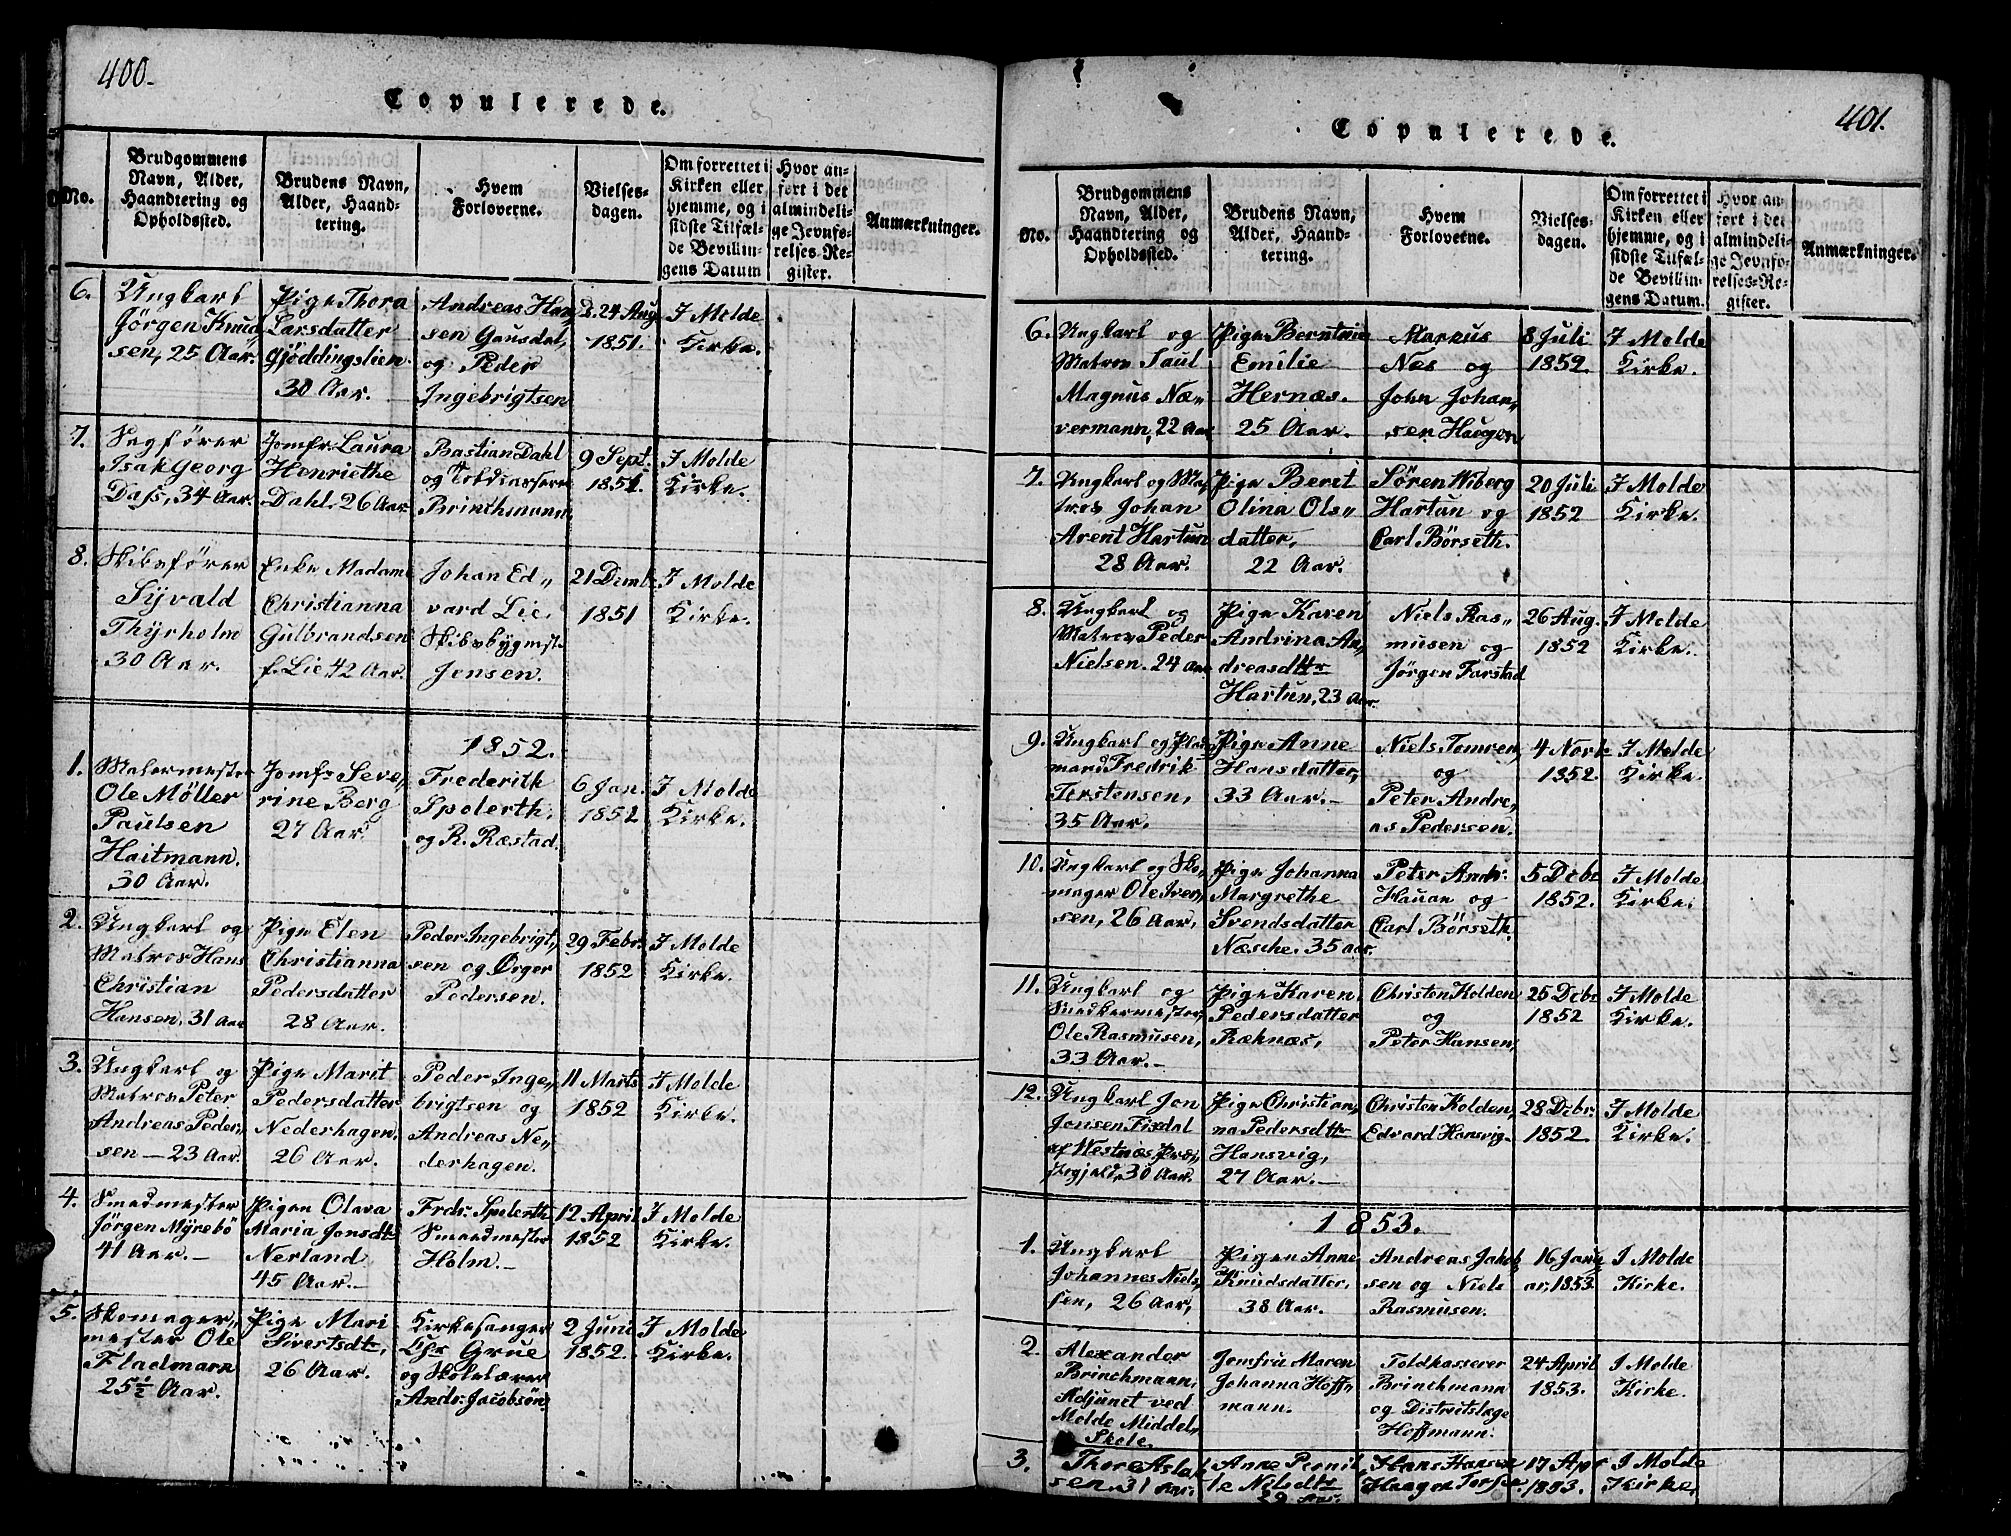 400.
Copulerede.
No.
Brudgommens
Navn, Alder,
Haandtering og
Opholdssted.
Brudens Navn,
Alder, Haand-
tering.
Hvem
Forloverne.
Vielses-
dagen.
Om forrettet i
Kirken eller
hjemme, og i
sidste Tilfæl-
de Bevillin-
gens Datum
Hvor an-
ført i det
almindeli-
ge Jevnfø-
relses-Re-
gister.
Anmærkninger.
6.
Ungkarl
Jörgen Knud,
sen, 25 Aar.
Pige Thora
Larsdatter
Gjöddingslien
30 Aar.
Andreas Han,
sen Gausdal,
og Peder
Ingebrigtsen
D. 24 Aug
1851.
I Molde
Kirke.
7.
Sagfører
Isak Georg
Dass, 34 Aar.
Jomfr. Laura
Henriethe
Dahl. 26 Aar
Bastian Dahl
og Toldkasserer
Brinchmann
9 Sept.
1851.
I Molde
Kirke.
8.
Skibsfører
Syvald
Thyrholm
30 Aar.
Enke Madame
Christianna
Gulbrandsen
f. Lie, 42 Aar.
Johan Ed„
vard Lie,
Skibsbygmest.
Jensen.
21 Decmb.
1851
I Molde
Kirke.
1852.
1.
Malermester
Ole Möller
Paulsen
Haitmann.
30 Aar.
Jomfr Seve,
rine Berg
27 Aar
Frederik
Spolerth.
og R. Ræstad.
6 Jan.
1852
I Molde
Kirke.
2.
Ungkarl og
Matros Hans
Christian
Hansen. 31 Aar
Pige Elen
Christianna
Pedersdatter
28 Aar.
Peder Ingebrigt,
sen og Örger
Pedersen.
29 Febr.
1852
I Molde
Kirke.
3.
Ungkarl og
Matros Peter
Andreas Peder,
sen — 23 Aar.
Pige Marit
Pedersdatter
Nederhagen.
26 Aar.
Peder Inge„
brigtsen og
Andreas Ne„
derhagen.
11 Marts
1852
I Molde
Kirke.
4.
Smedmester
Jörgen Myrebö
41 Aar.—
Pigen Olava
Maria Jonsdtr
Nerland
45 Aar.—
Frdr. Spolerth
Smedmester
Holm.—
12 April
1852
I Molde
Kirke.
5.
Skomager„
mester Ole
Fladmarn
25½ Aar.
Pige Mari
Sivertsdtr,
26 Aar.
Kirkesanger
Chr Grue
og Skolelærer
Andr. Jacobsön.
2 Juni
1852.
I Molde
Kirke.
401.
Copulerede.
No.
Brudgommens
Navn, Alder,
Haandtering og
Opholdssted.
Brudens Navn,
Alder, Haand-
tering.
Hvem
Forloverne.
Vielses-
dagen.
Om forrettet i
Kirken eller
hjemme, og i
sidste Tilfæl-
de Bevillin-
gens Datum.
Hvor an-
ført i det
almindeli-
ge Jevnfø-
relses-Re-
gister.
Anmærkninger.
6.
Ungkarl og
Matros Paul
Magnus Næ„
vermann, 22 Aar
Pige Berntine
Emilie
Hernæs.
25 Aar.
Markus
Næs og
John Johan„
sen Haugen
8 Juli
1852.
I Molde
Kirke.
7.
Ungkarl og Ma,
tros Johan
Arent Hartun
28 Aar.
Pige Berit
Olina Ols„
datter,
22 Aar.
Sören Wiberg
Hartun og
Carl Börseth.
20 Juli
1852
I Molde
Kirke.
8.
Ungkarl og
Matros Peder
Nielsen. 24 Aar
Pige Karen
Andrina An,
dreasdttr
Hartun, 23 Aar.
Niels Ras„
musen og
Jörgen Farstad
26 Aug.
1852
I Molde
Kirke.
9.
Ungkarl og Plads
mand Fredrik
Torstensen,
35 Aar.
Pige Anne
Hansdatter,
33 Aar.—
Niels Tomren,
og
Peter Andre,
as Pedersen.
4 Novb
1852.
I Molde
Kirke.
10.
Ungkarl og Sko,
mager Ole Iver,
sen, 26 Aar,
Pige Johanna
Margrethe
Svendsdatter
Næsche. 35 aar.
Peter Andr.
Hauan og
Carl Börseth.
5 Dcbr
1852.
I Molde
Kirke.
11.
Ungkarl og
Snedkermester,
Ole Rasmusen,
33 Aar.—
Pige Karen
Pedersdatter
Ræknæs,
Christen Kolden
og
Peter Hansen,
25 Dcbr
1852
I Molde
Kirke.
12.
Ungkarl Jon
Jonsen Fixdal
af Westnæs Præ,
stegjeld, 30 Aar.
Pige Christian,
na Pedersdttr
Hansvig,
27 Aar.—
Christen Kolden,
Edvard Hansvig.
28 Dcbr.
1852.
I Molde
Kirke.
1853.
1.
Ungkarl
Johannes Niels,
sen, 26 Aar,
Pigen Anne
Knudsdatter,
38 Aar.
Andreas Jakob
sen og Niels
Rasmusen.
16 Janu
ar, 1853.
I Molde
Kirke.
2
Alexander
Brinchmann,
Adjunct ved
Molde Middel,
Skole.
Jomfru Maren
Johanna Hoff,
mann.
Toldkasserer
Brinchmann
og Districtslæge
Hoffmann.
24 April
1853.
I Molde
Kirke.
3.
Thore Aslak
sen. 31 Aar.
Anne Pernil,
le Nilsdtr
29 Aar.
Hans Hansen
17 Apr
1853.
I Molde
Kirke,